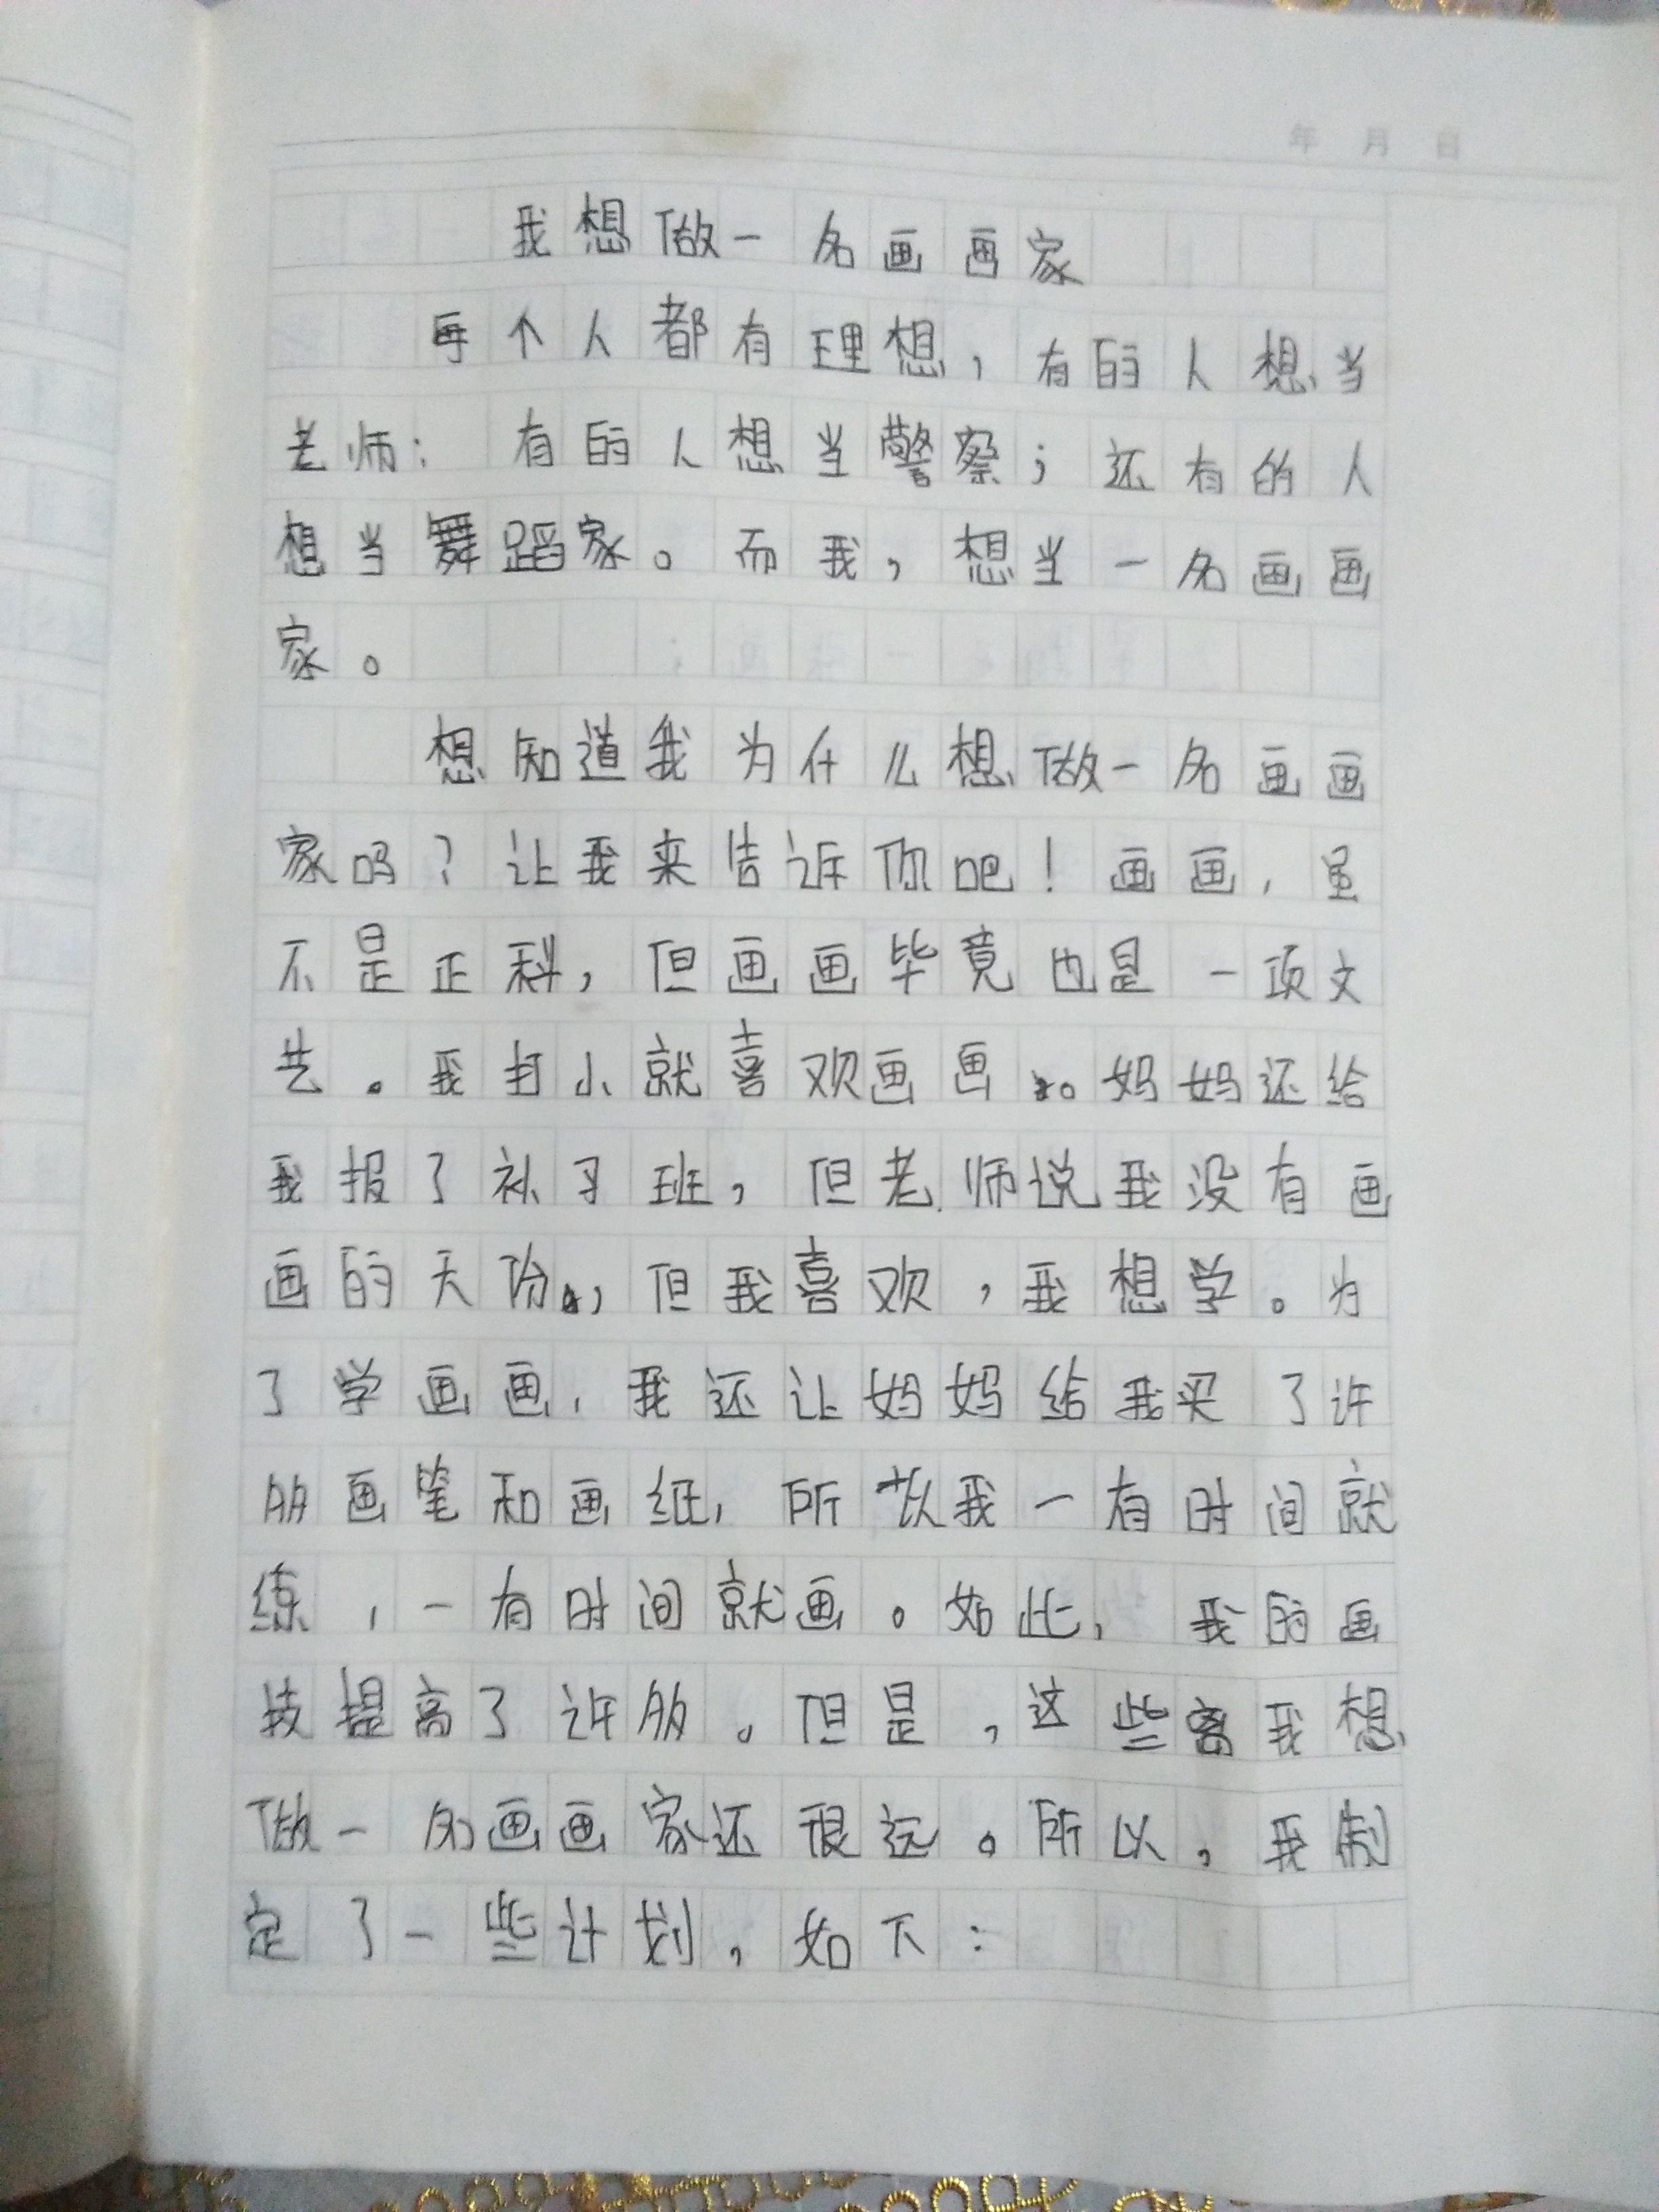 年 月 日
我想做一名画画家
每个人都有理想，有的人想当
老师；有的人想当警察；还有的人
想当舞蹈家。而我，想当一名画画
家。
想知道我为什么想做一名画画
家吗？让我来告诉你吧！画画，虽
不是正科，但画画毕竟也是一项文
艺。我打小就喜欢画画。妈妈还给
我报了补习班，但老师说我没有画
画的天份，但我喜欢，我想学。为
了学画画，我还让妈妈给我买了许
多画笔和画纸，所以我一有时间就
练，一有时间就画。如此，我的画
技提高了许多。但是，这些离我想
做一名画画家还很远。所以，我制
定了一些计划，如下：